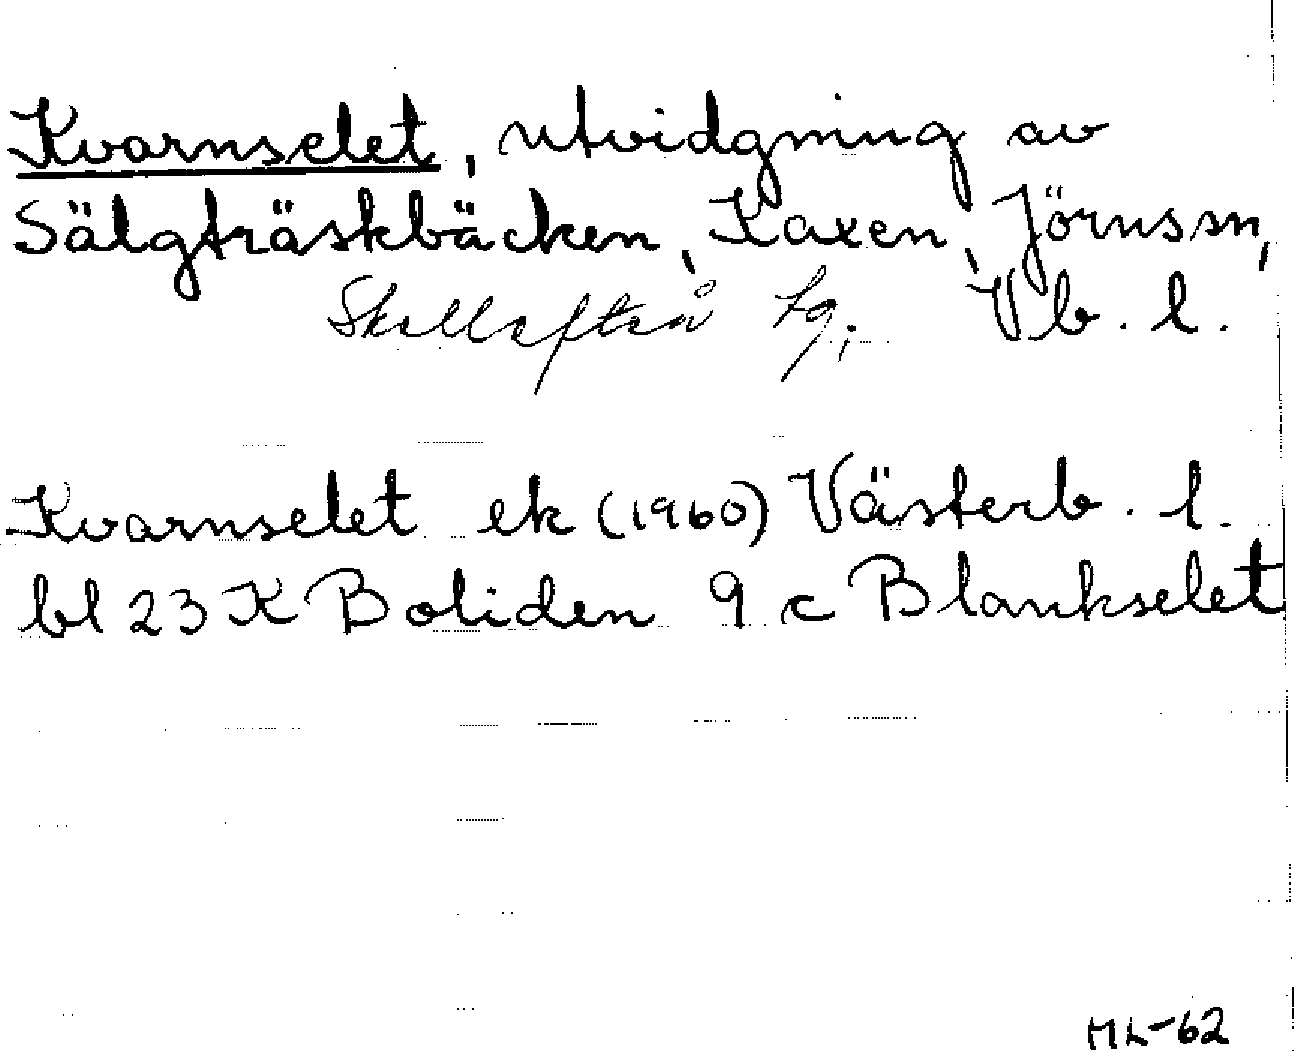 Kvarnselet, utvidgning av
Sälgträskbäcken, Kaxen, Jörns sn,
Skellefteå tg; Vb. l.
Kvarnselet ek (1960) Västerb. l.
bl 23 K Boliden 9 c Blankselet
ML-62